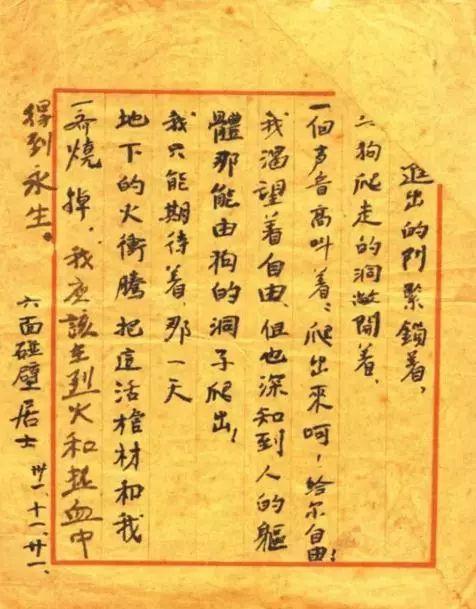 出的门紧鎖着,
狗爬走的洞敞開着,
一個声音高叫着:爬出來呵!給尔自由!
我渴望着自由,但也深知到人的軀
體那能由狗的洞子爬出!
我只能期待着,那一天
地下的火衝騰把這活棺材和我
一齊燒掉,我应該在烈火和热血中
得到永生。
六面碰壁居士 卅一.十一.廿一.